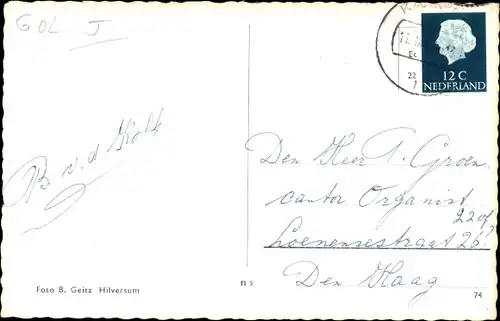 GOL J
12 C
NEDERLAND
B v. d Kolk
Den Heer A. Groen
cantor Organist
22 of
Loenensestraat 26.
Den Haag
Foto B. Geitz Hilversum
n s
74